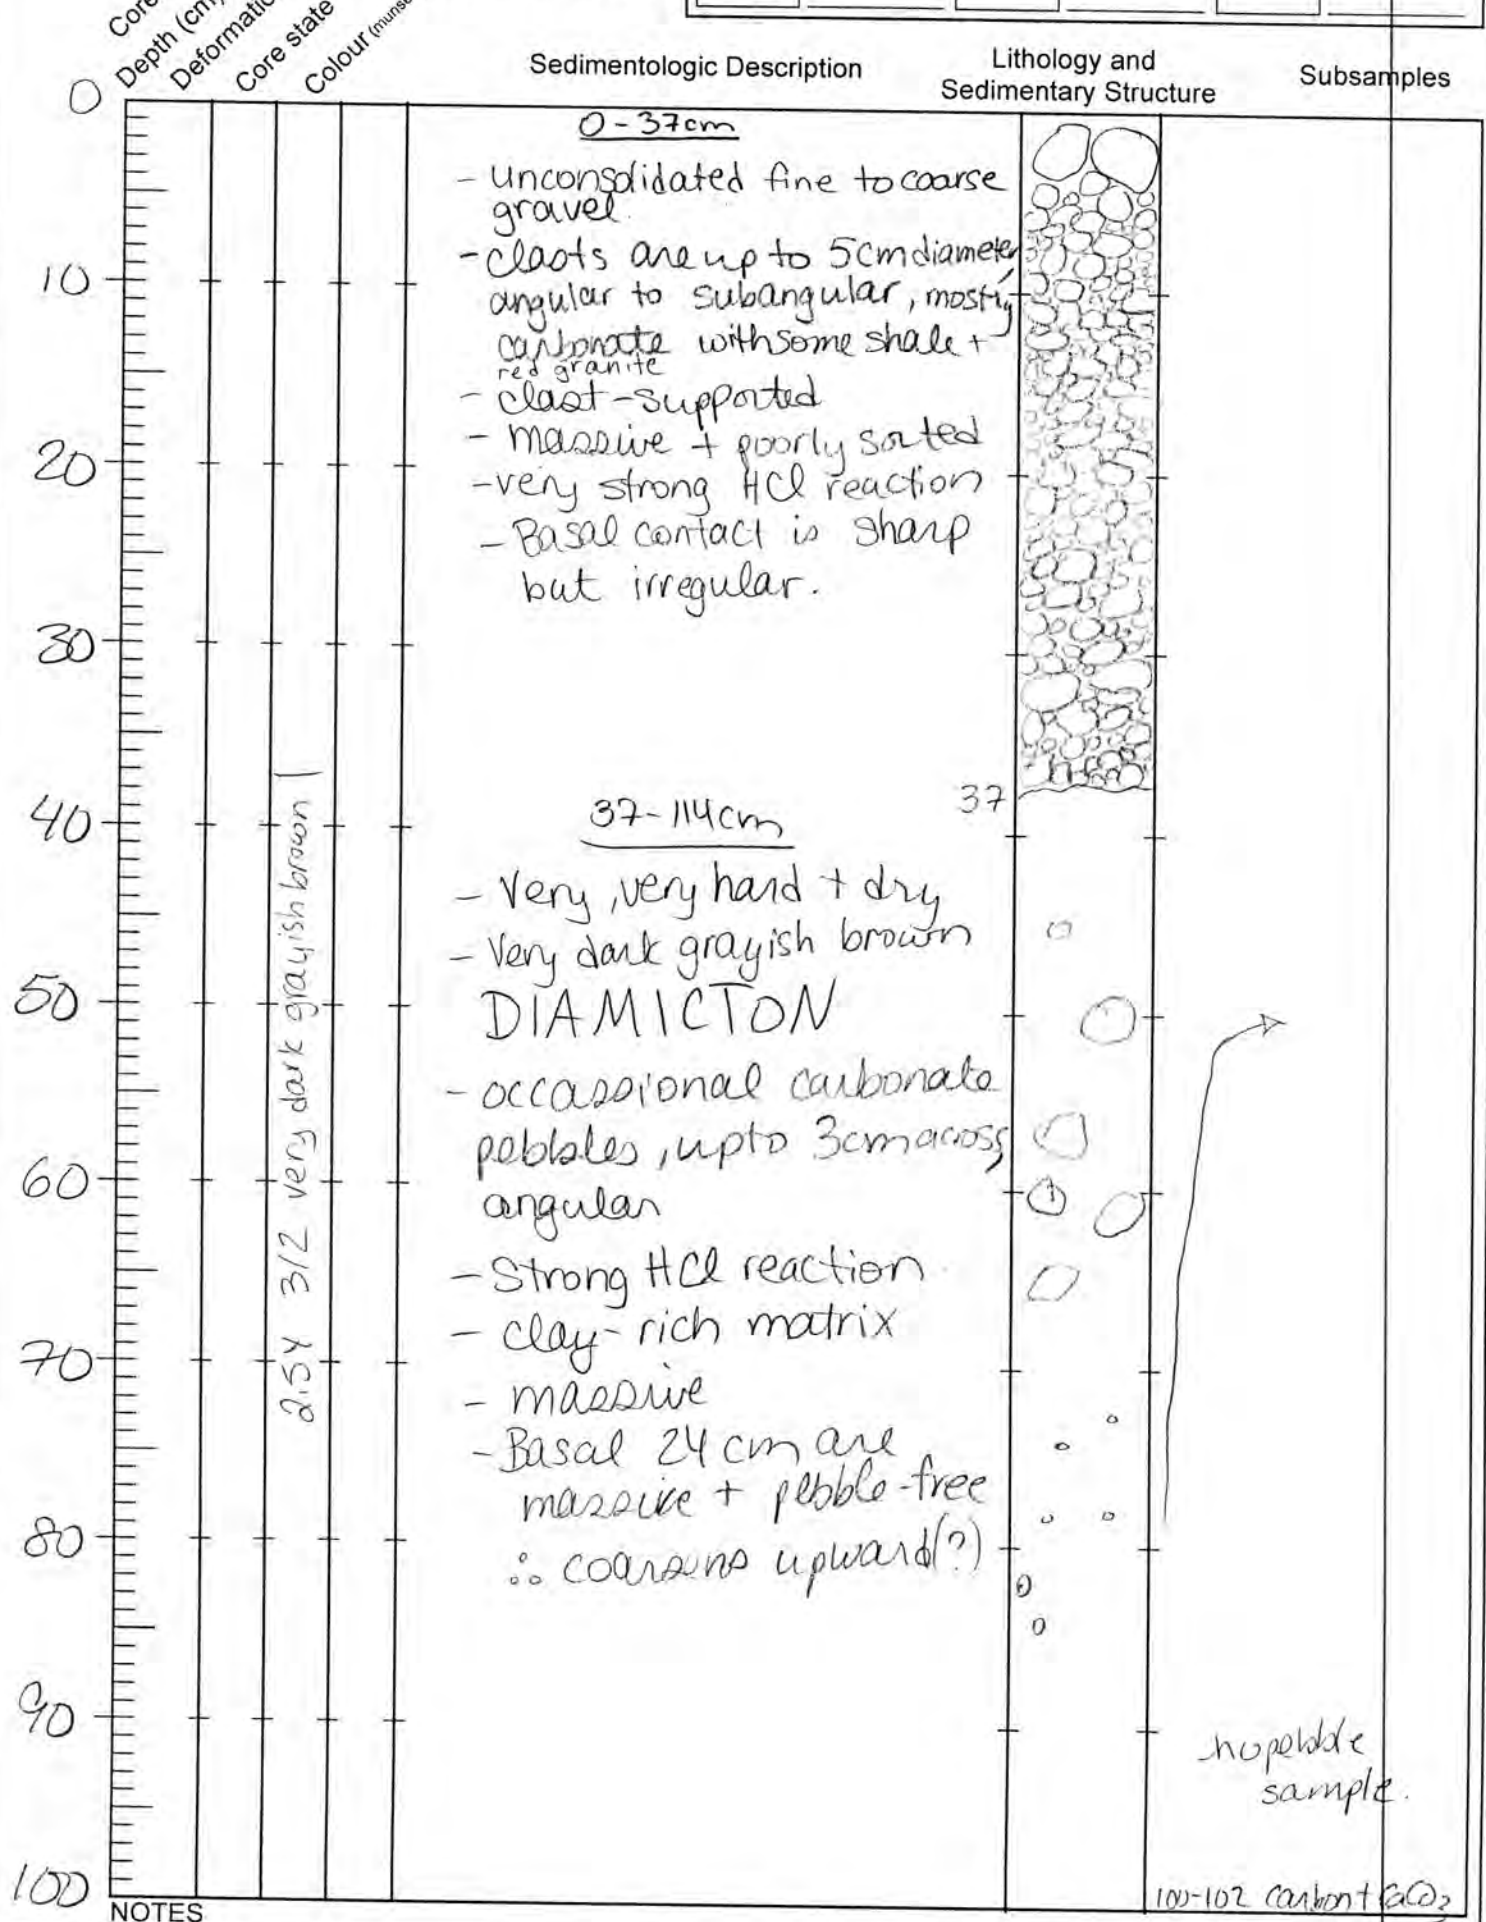 Core
Depth (cm)
Deformatio
Core state
Colour (munse
Sedimentologic Description
Lithology and
Sedimentary Structure
Subsamples
0
0-37cm
- unconsolidated fine to coarse
gravel.
- clasts are up to 5cm diameter
angular to subangular, mostly
carbonate with some shale +
red granite
- clast-supported
- massive + poorly sorted
- very strong HCl reaction
- Basal contact is sharp
but irregular.
10
20
30
40
50
60
70
80
90
100
2.5Y 3/2 very dark grayish brown
37
37-114cm
- Very, very hard + dry
- Very dark grayish brown
DIAMICTON
- occassional carbonate
pebbles, upto 3cm across,
angular
- Strong HCl reaction.
- clay-rich matrix
- massive
- Basal 24 cm are
massive + pebble-free
∴ coarsens upward(?)
no pebble
sample.
100-102 carbon + CaCO3
NOTES